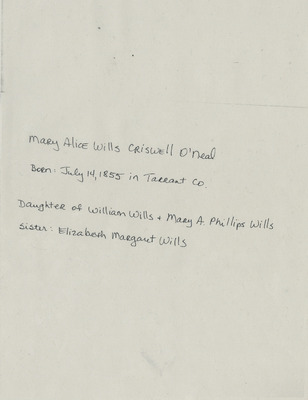 Mary Alice Wills Criswell O'Neal
Born: July 14, 1855 in Tarrant Co.
Daughter of William Wills + Mary A. Phillips Wills
Sister: Elizabeth Margaut Wills